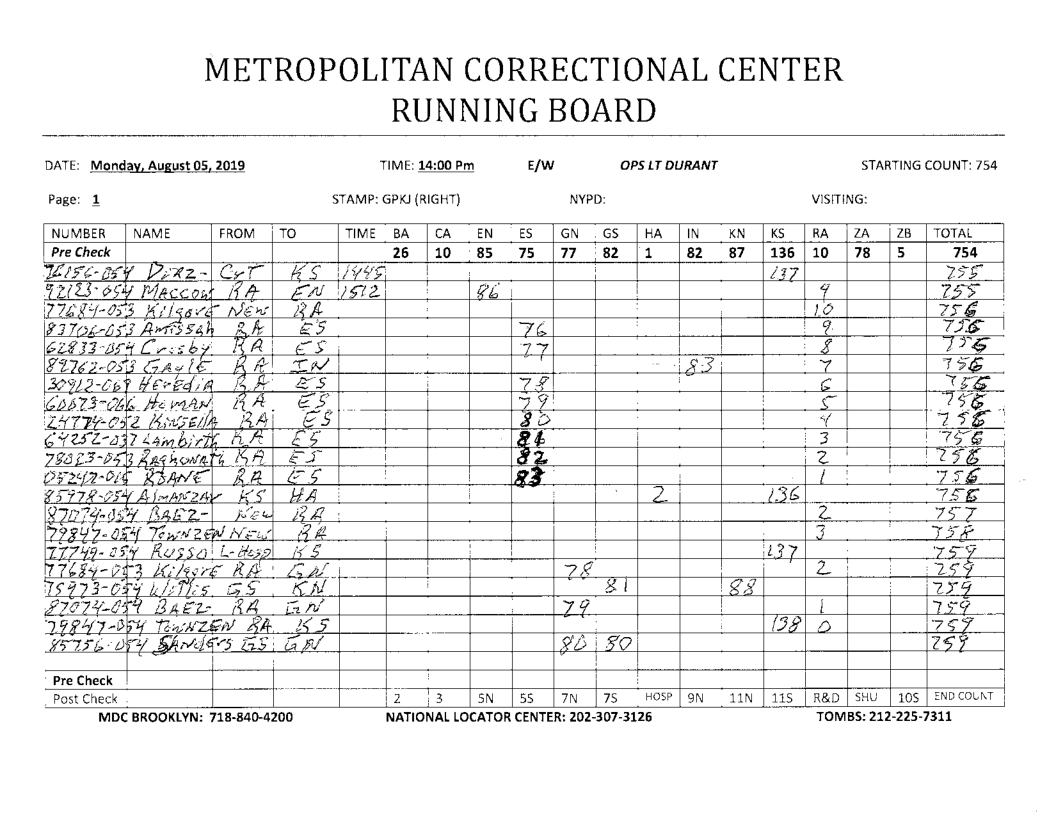 METROPOLITAN CORRECTIONAL CENTER
RUNNING BOARD
DATE: Monday, August 05, 2019 TIME: 14:00 Pm E/W OPS LT DURANT STARTING COUNT: 754
Page: 1 STAMP: GPKJ (RIGHT) NYPD: VISITING:
NUMBER NAME FROM TO TIME BA CA EN ES GN GS HA IN KN KS RA ZA ZB TOTAL
Pre Check 26 10 85 75 77 82 1 82 87 136 10 78 5 754
-054 DIAZ- CYT KS 1445 137 755
92123-054 MACCOW RA EN 1512 86 9 755
77684-053 Kilgore New RA 10 756
83706-053 Antissah RA ES 76 9 756
62833-054 Crosby RA ES 77 8 756
89762-053 GAYLE RA IN 83 7 756
30912-069 HEREdiA RA ES 78 6 756
60873-066 HOMAN RA ES 79 5 756
24774-052 KINSEllA RA ES 80 4 756
64252-037 Lambirth RA ES 81 3 756
78023-053 RAGHONATH RA ES 82 2 756
05242-015 RA ES 83 1 756
85978-054 AlMANZAR KS HA 2 136 756
87074-054 BAEZ- New RA 2 757
79847-054 TOWNZEN NEW RA 3 758
77749-054 RUSSO L-HOSP KS 137 759
77684-053 Kilgore RA GN 78 2 759
75973-054 Willis GS KN 81 88 759
87074-054 BAEZ- RA GN 79 1 759
79847-054 TOWNZEN RA KS 138 0 759
85756-054 SANDERS GS GN 80 80 759
Pre Check
Post Check 2 3 5N 5S 7N 7S HOSP 9N 11N 11S R&D SHU 10S END COUNT
MDC BROOKLYN: 718-840-4200 NATIONAL LOCATOR CENTER: 202-307-3126 TOMBS: 212-225-7311